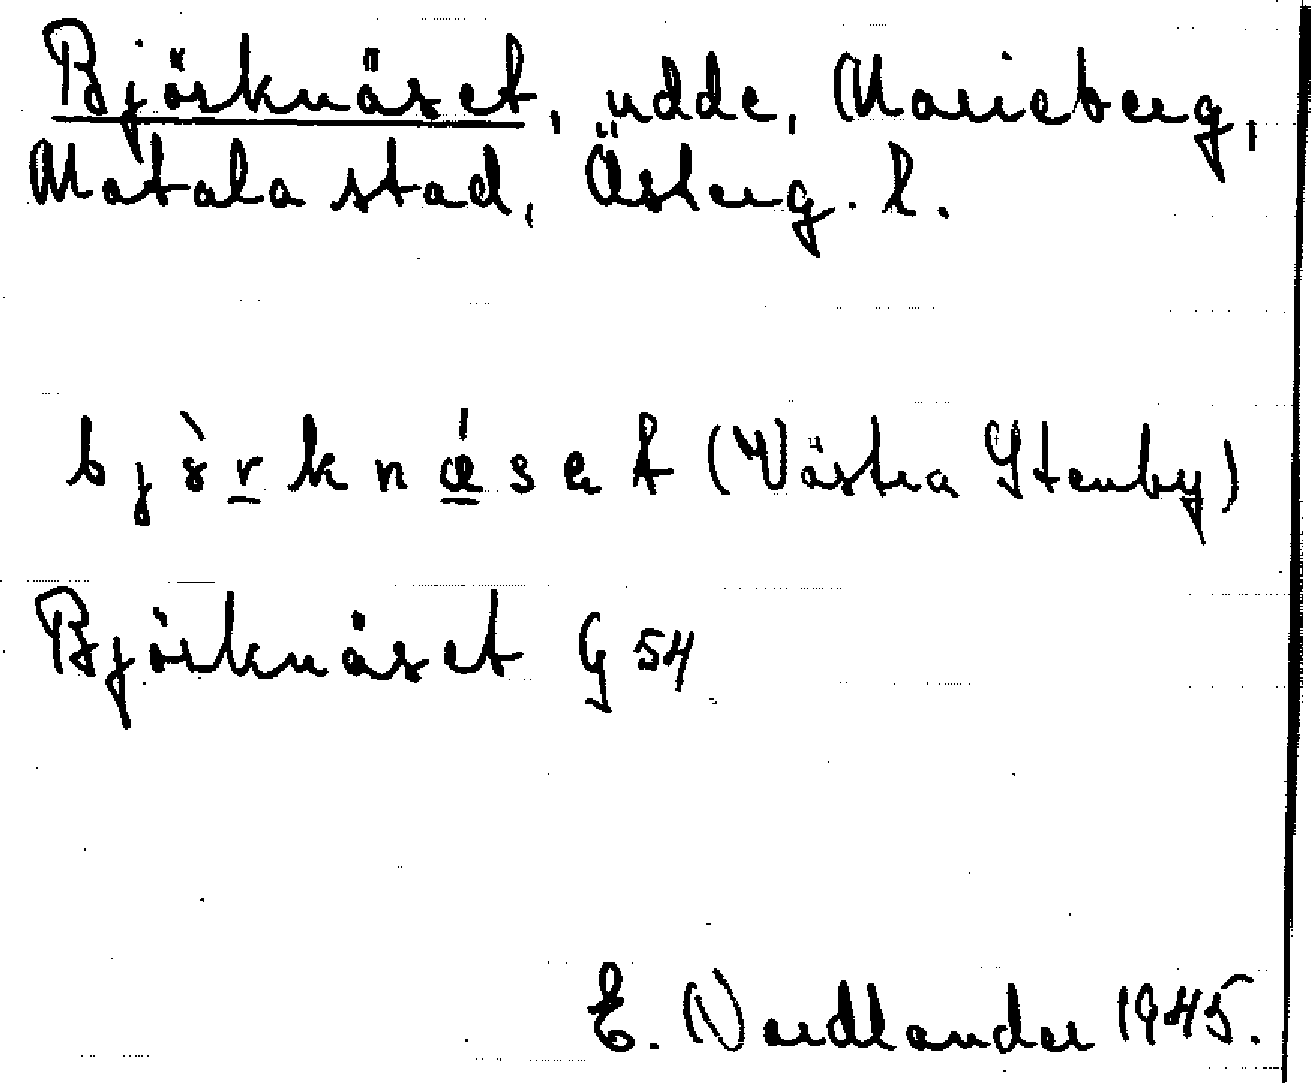 Björknäset, udde, Marieberg,
Motala stad, Österg. l.
bjørknæset (Västra Stenby)
Björknäset G 54
E. Nordlander 1945.